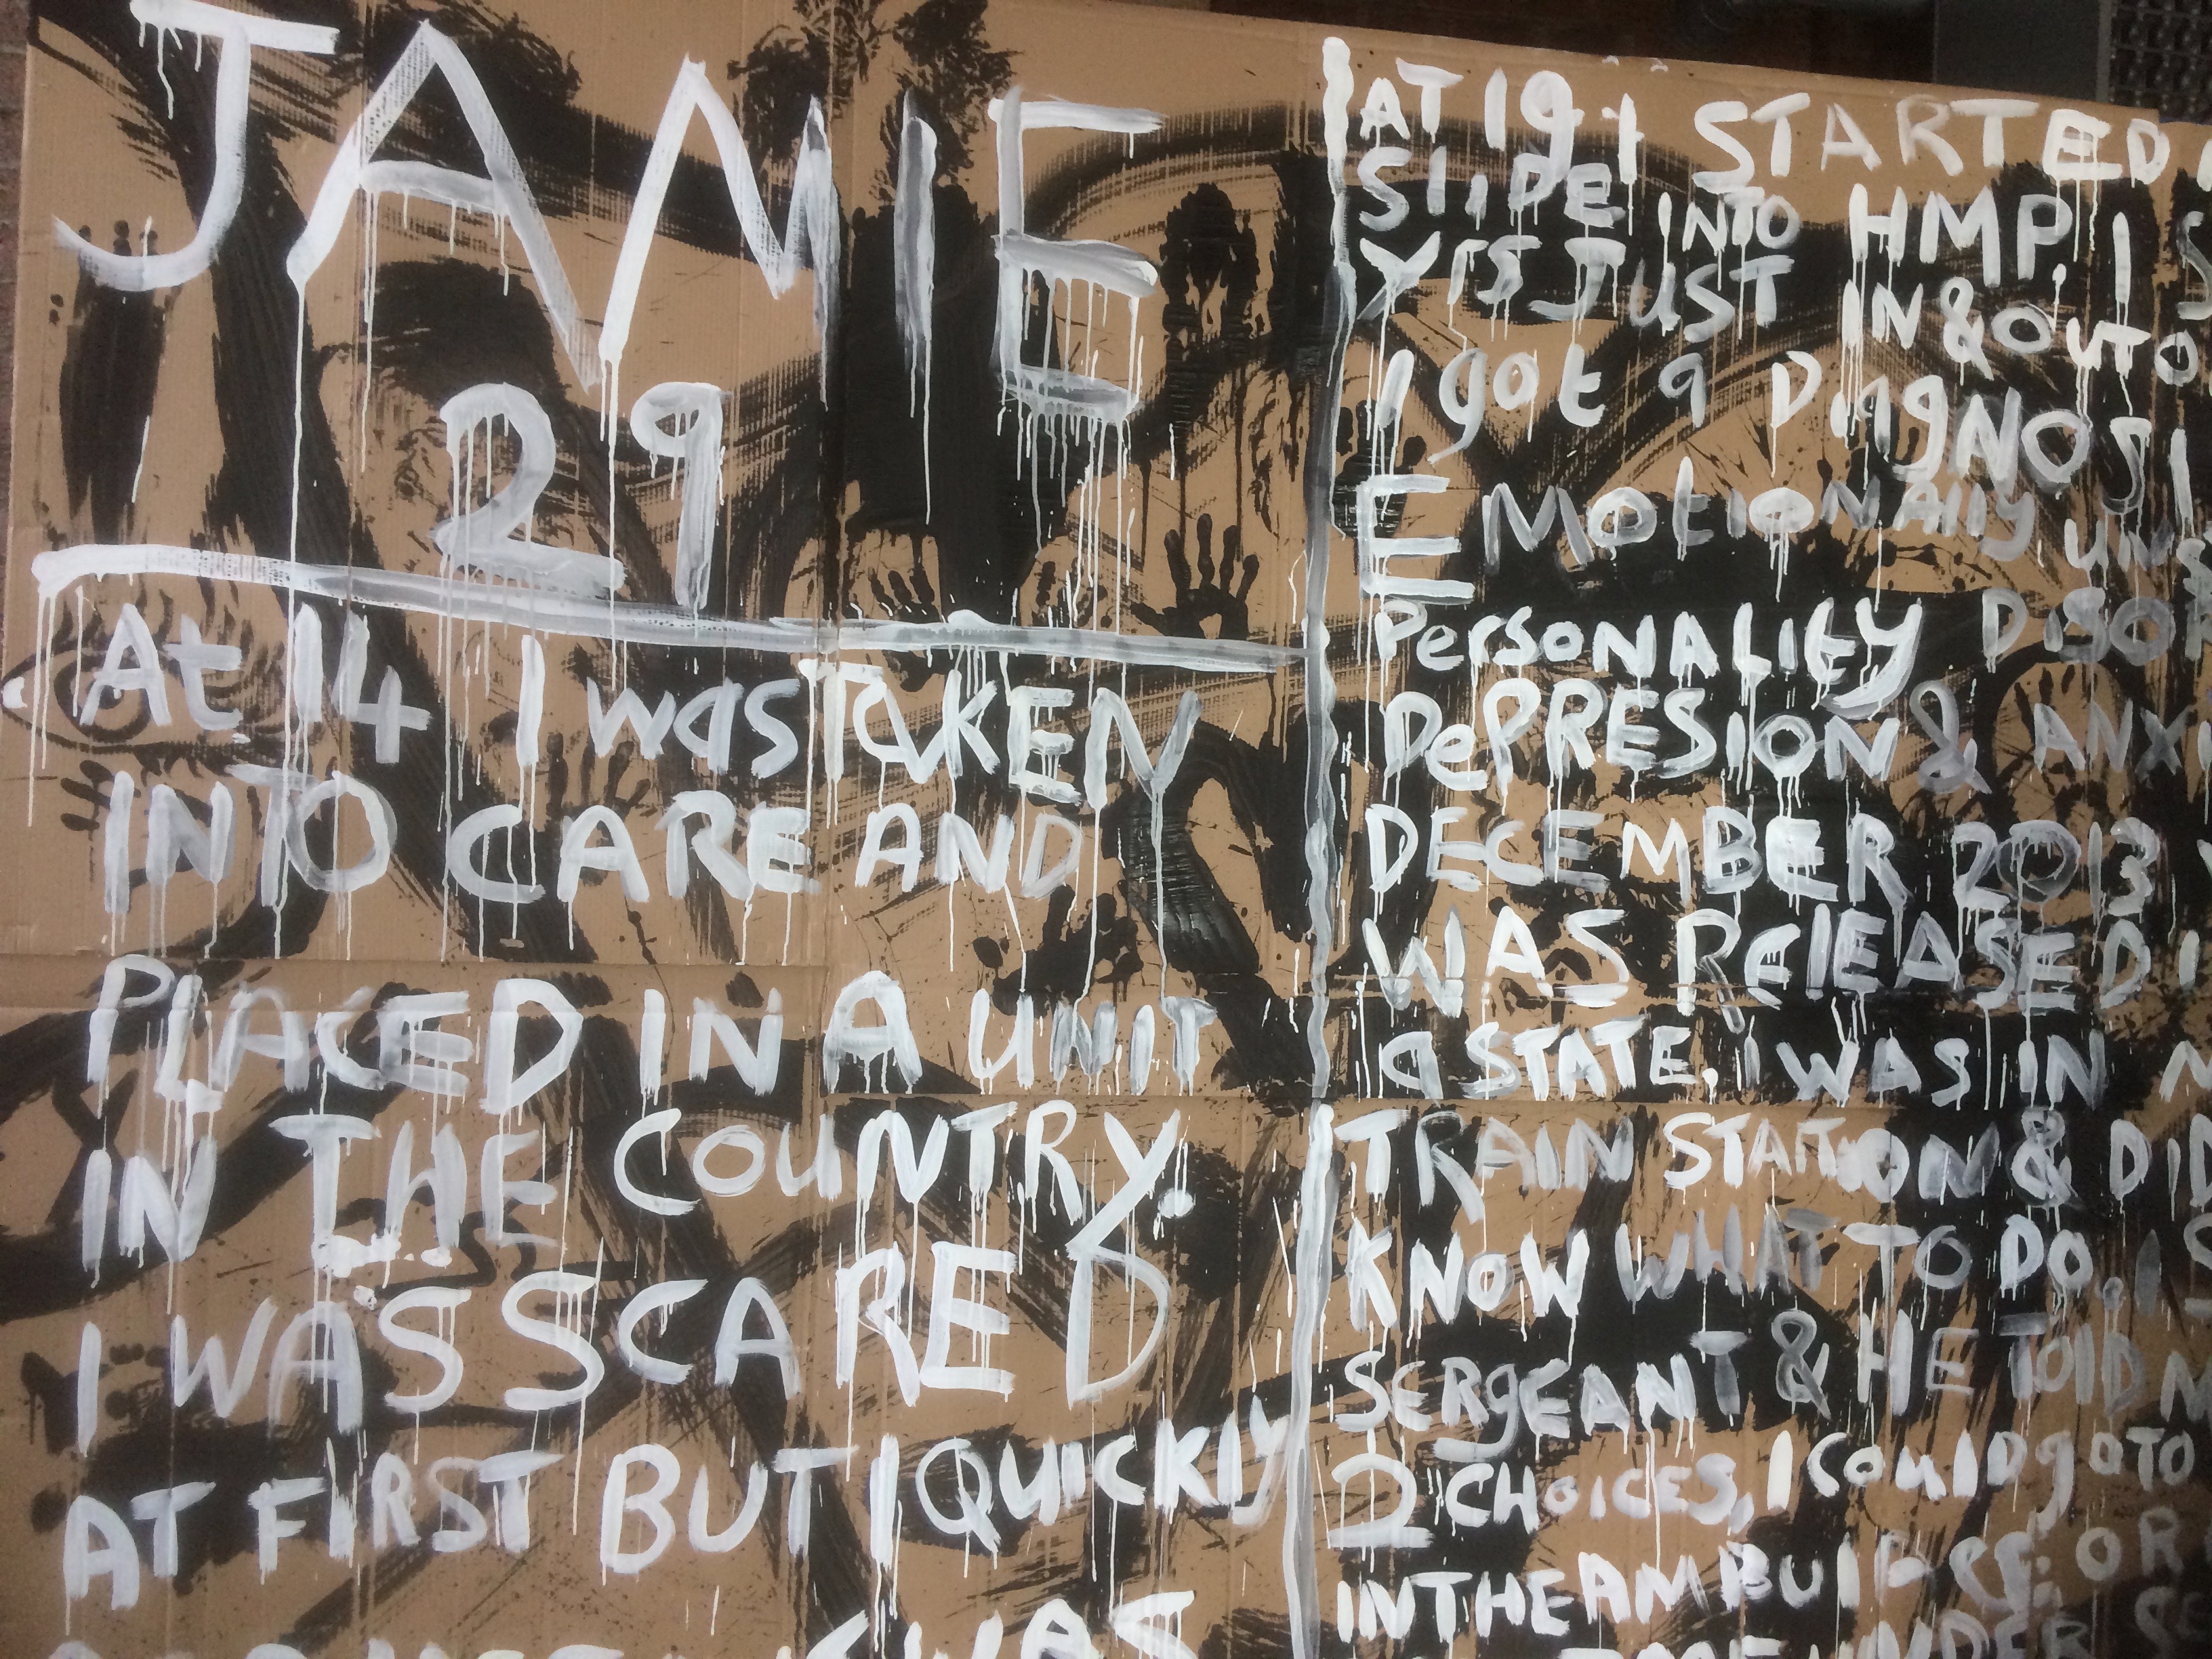 JAMIE
29
At 14 I was TaKEN
INTO CARE AND
PLACED IN A UNIT
IN THE COUNTRY.
I WAS SCARED
AT FIRST BUT I QUICKLY
WAS
AT 19 I STARTED
SLIDE INTO HMP. I
YRS JUST IN & OUT O
I got a DIAgNOSI
EMotioNAlly UNS
PersoNALity DISOR
DePRESION & ANXI
DECEMBER 2013
WAS RElEASED I
a STATE. I WAS IN
TRAIN STATION & DID
KNOW WHAT TO DO. I S
SERgEANT & HE TOlD
2 CHOICES, I COUlD go TO
IN THE AMBULANCE OR
UNDER SE